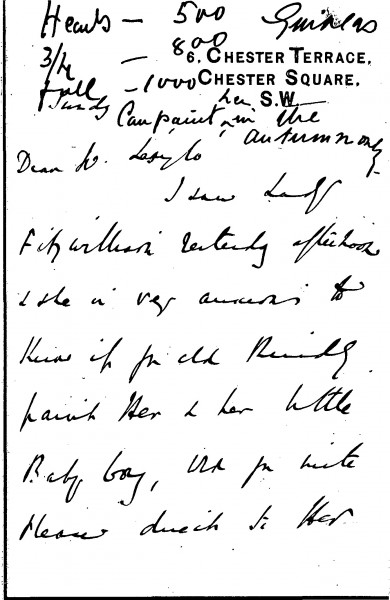 Heads - 500 Guineas
3/4 - 800
full - 1000
6, CHESTER TERRACE,
CHESTER SQUARE,
S.W.
Can paint her in the
autumn only
Dear Mr.
I saw Lady
Fitzwilliam Yesterday afternoon
& she is very anxious to
Know if you cld Kindly
paint Her & her little
Baby boy, Wld you write
Please direct to Her